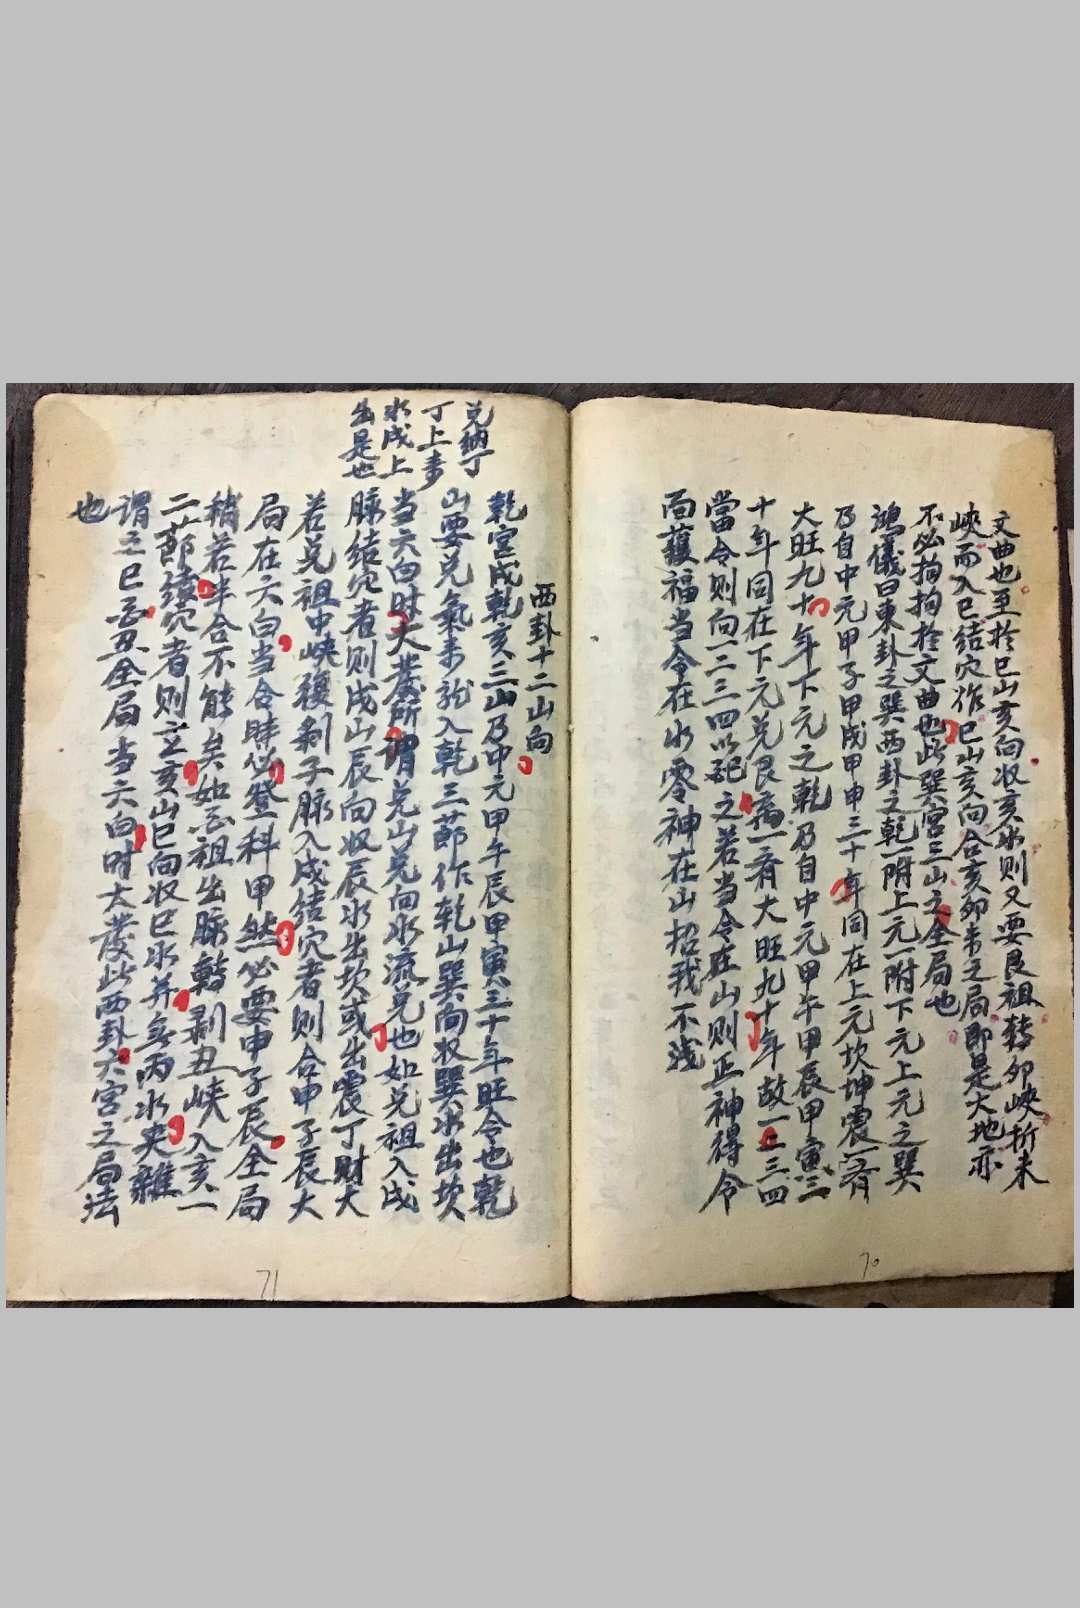 文曲也至於巳山亥向收亥水則又要艮祖轉卯峽折未
峽而入巳結穴作巳山亥向合亥卯未之局即是大地亦
不必拘拘於文曲也此巽宮三山之全局也
鴻儀曰東卦之巽西卦之乾一附上元一附下元上元之巽
乃自中元甲子甲戌甲申三十年同在上元坎坤震一有
大旺九十年下元之乾乃自中元甲午甲辰甲寅三
十年同在下元兌艮一有大旺九十年故一二三四
當令則向一二三四以記之若当令在山則正神得令
而護福当令在水零神在山招我不浅
70
西卦十二山向
乾宮戌乾亥三山乃中元甲午辰甲寅三十年旺令也乾
山要兌氣来龙入乾三莭作乾山巽向收巽水出坎
当六白时大發所謂兌山兌向水流兌也如兌祖入戌
脉結穴者則戌山辰向收辰水出坎或出震丁財大
若兌祖中峽復剥子脉入戌結穴者則合申子辰大
局在六白当合時必登科甲然必要申子辰全局
稍若半合不能矣如兌祖出脉轉剥丑峽入亥一
二莭結穴者則立亥山巳向收巳水并無丙水夾雜
謂之巳酉丑全局当六白时大發此西卦六宮之局法
也
兌納丁
丁上来
水戌上
出是也
71